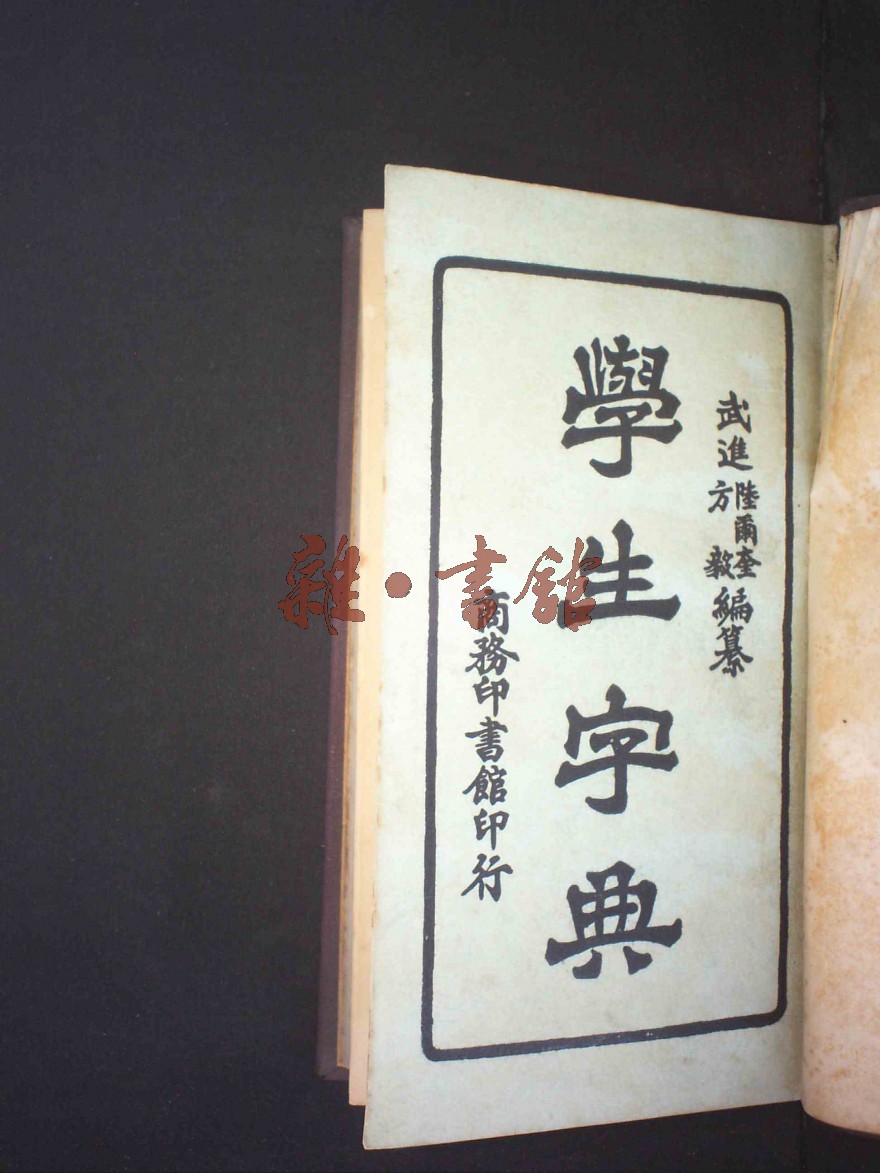 武進陸爾奎方毅編纂
學生字典
商務印書館印行
雜·書館